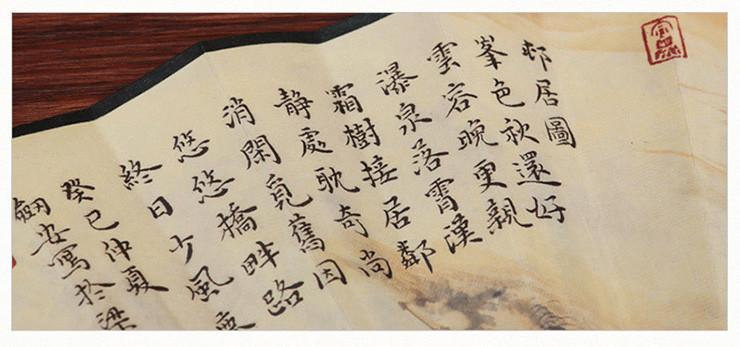 邨居圖
峯色秋還好
雲容晚更親
瀑泉落霄漢
霜樹接居鄰
静處耽奇尚
消閑覓舊因
悠悠橋畔路
終日少風
癸巳仲夏
安寫於梁